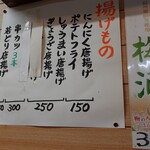 揚げもの
にんにく唐揚げ
ポテトフライ
しゅうまい唐揚げ
ぎょうざ唐揚げ
150
250
串カツ3本
若どり唐揚げ
300
梅酒
3